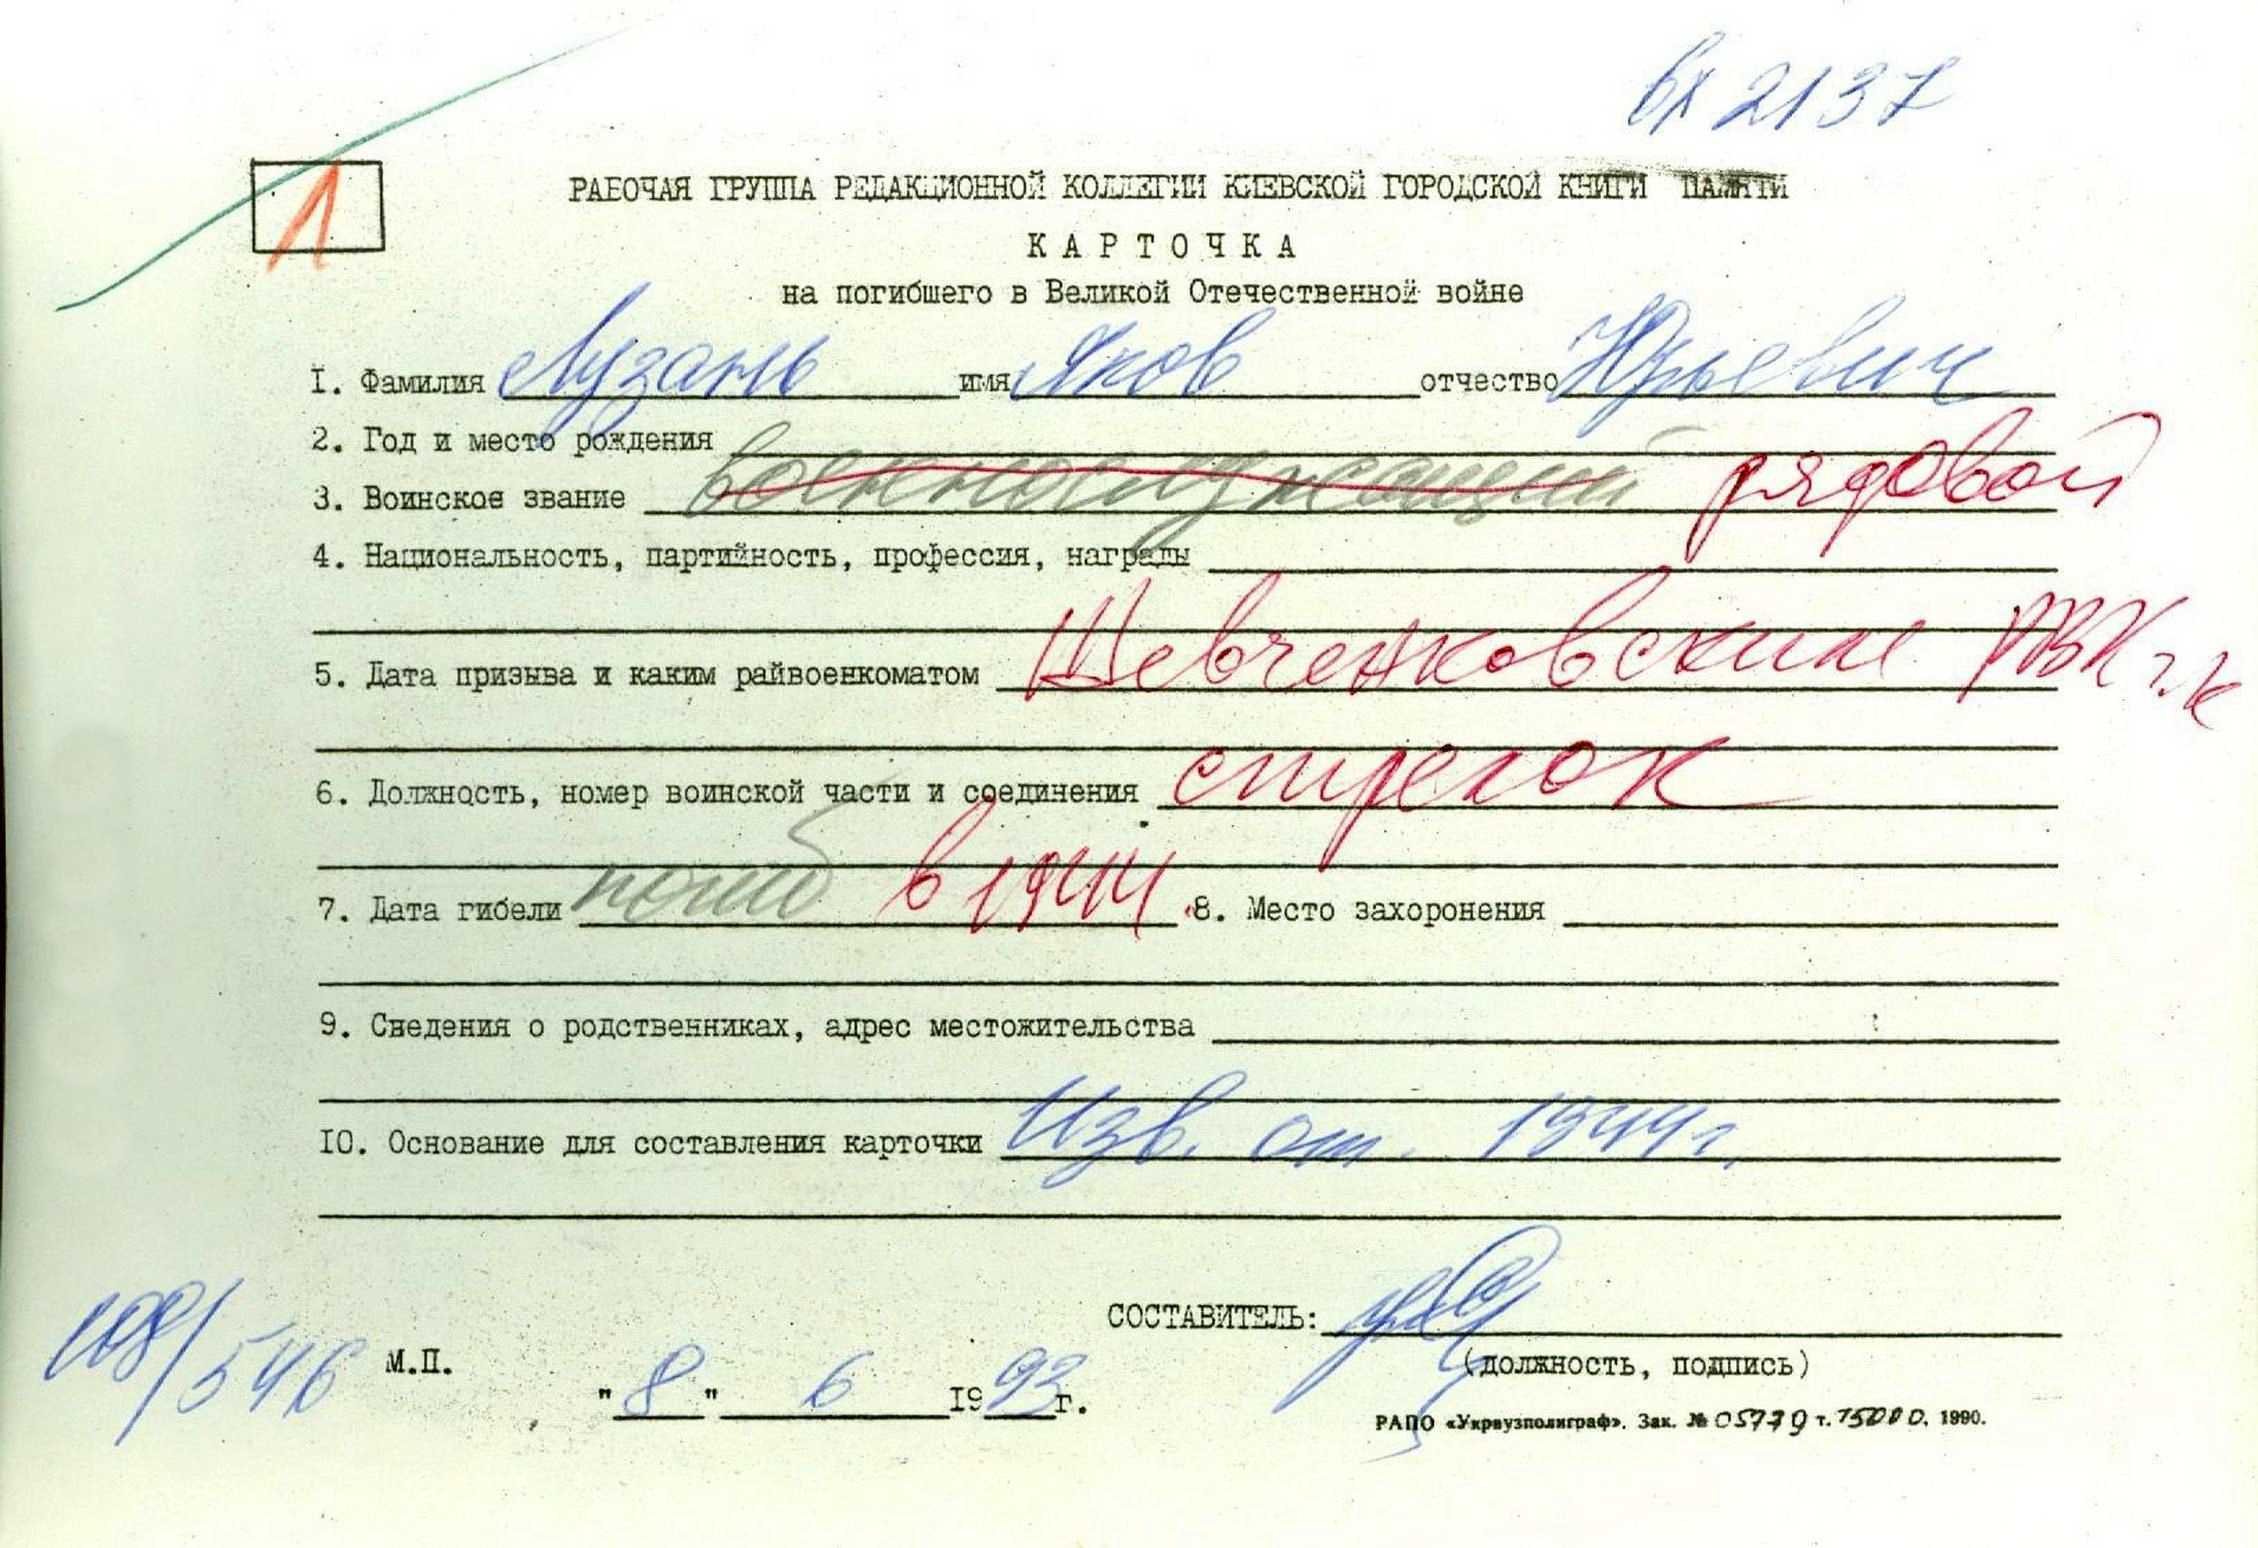 вх 2137
1
РАБОЧАЯ ГРУППА РЕДАКЦИОННОЙ КОЛЛЕГИИ КИЕВСКОЙ ГОРОДСКОЙ КНИГИ ПАМЯТИ
КАРТОЧКА
на погибшего в Великой Отечественной войне
1. Фамилия Лузань имя Яков отчество Юрьевич
2. Год и место рождения
3. Воинское звание военнослужащий рядовой
4. Национальность, партийность, профессия, награды
5. Дата призыва и каким райвоенкоматом Шевченковским РВК г.К
6. Должность, номер воинской части и соединения стрелок
7. Дата гибели погиб в 1944. 8. Место захоронения
9. Сведения о родственниках, адрес местожительства
10. Основание для составления карточки Изв. от. 1944 г.
СОСТАВИТЕЛЬ:
(должность, подпись)
108/546 М.П.
"8" 6 1993 г.
РАПО «Укрвузполиграф». Зак. № 05779 т. 15000. 1990.